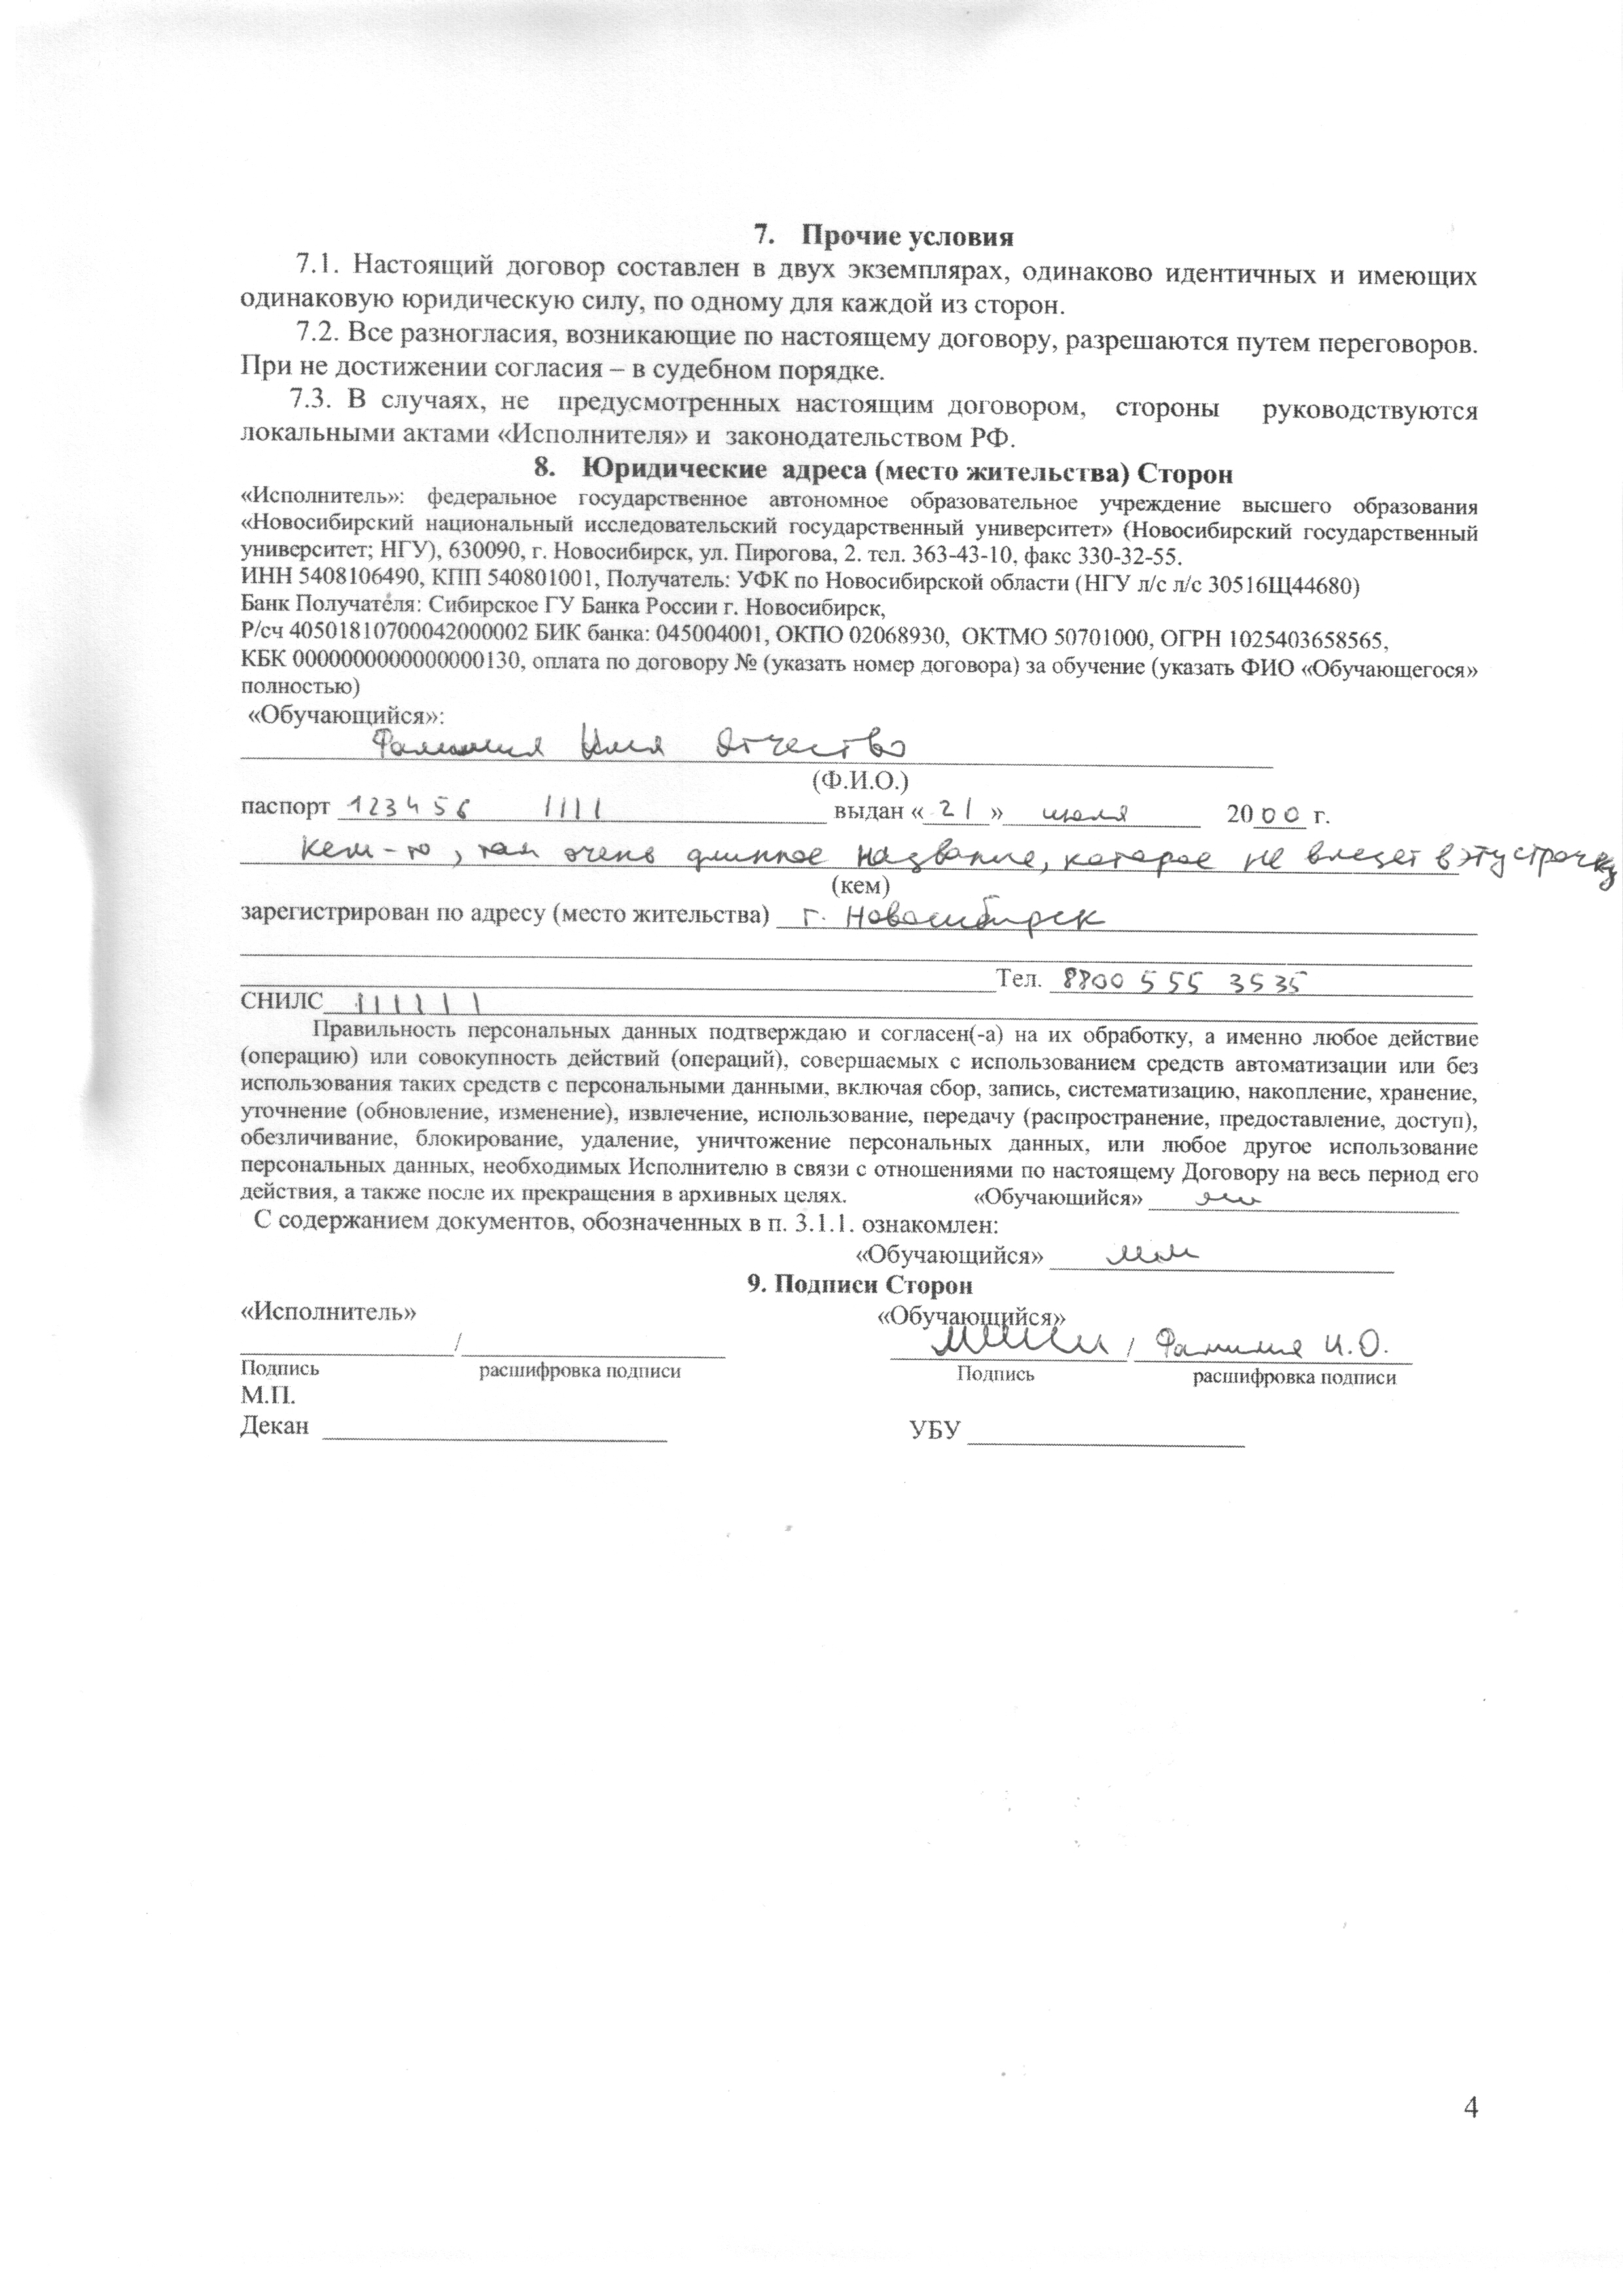 7. Прочие условия
7.1. Настоящий договор составлен в двух экземплярах, одинаково идентичных и имеющих
одинаковую юридическую силу, по одному для каждой из сторон.
7.2. Все разногласия, возникающие по настоящему договору, разрешаются путем переговоров.
При не достижении согласия – в судебном порядке.
7.3. В случаях, не предусмотренных настоящим договором, стороны руководствуются
локальными актами «Исполнителя» и законодательством РФ.
8. Юридические адреса (место жительства) Сторон
«Исполнитель»: федеральное государственное автономное образовательное учреждение высшего образования
«Новосибирский национальный исследовательский государственный университет» (Новосибирский государственный
университет; НГУ), 630090, г. Новосибирск, ул. Пирогова, 2. тел. 363-43-10, факс 330-32-55.
ИНН 5408106490, КПП 540801001, Получатель: УФК по Новосибирской области (НГУ л/с л/с 30516Щ44680)
Банк Получателя: Сибирское ГУ Банка России г. Новосибирск,
Р/сч 40501810700042000002 БИК банка: 045004001, ОКПО 02068930, ОКТМО 50701000, ОГРН 1025403658565,
КБК 00000000000000000130, оплата по договору № (указать номер договора) за обучение (указать ФИО «Обучающегося»
полностью)
«Обучающийся»:
Фамилия Имя Отчество
(Ф.И.О.)
паспорт 123456 1111 выдан «21» июля 2000 г.
Кем-то, там очень длинное название, которое не влезет в эту строчку
(кем)
зарегистрирован по адресу (место жительства) г. Новосибирск
Тел. 8800 555 3535
СНИЛС 111111
Правильность персональных данных подтверждаю и согласен(-а) на их обработку, а именно любое действие
(операцию) или совокупность действий (операций), совершаемых с использованием средств автоматизации или без
использования таких средств с персональными данными, включая сбор, запись, систематизацию, накопление, хранение,
уточнение (обновление, изменение), извлечение, использование, передачу (распространение, предоставление, доступ),
обезличивание, блокирование, удаление, уничтожение персональных данных, или любое другое использование
персональных данных, необходимых Исполнителю в связи с отношениями по настоящему Договору на весь период его
действия, а также после их прекращения в архивных целях. «Обучающийся»
С содержанием документов, обозначенных в п. 3.1.1. ознакомлен:
«Обучающийся»
9. Подписи Сторон
«Исполнитель» «Обучающийся»
/ / Фамилия И.О.
Подпись расшифровка подписи Подпись расшифровка подписи
М.П.
Декан УБУ
4